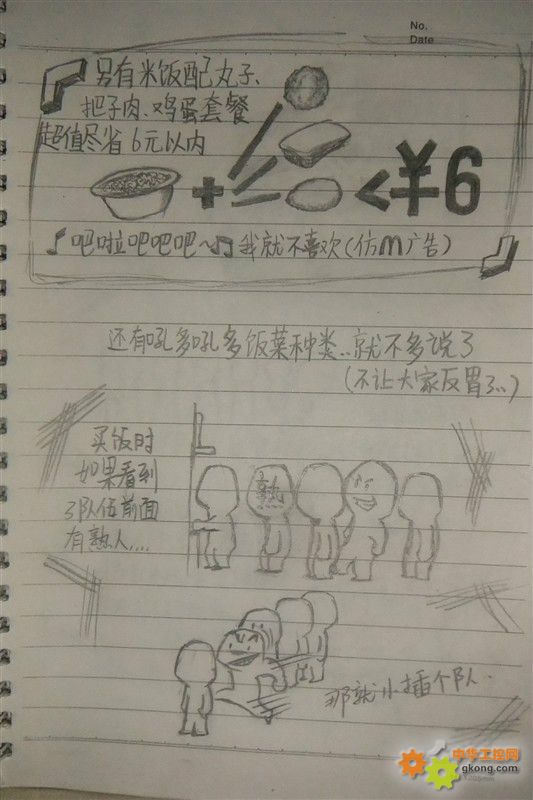 No.
Date
另有米饭配丸子、
把子肉、鸡蛋套餐
超值尽省6元以内
+ < ¥6
♪吧啦吧吧吧~♫我就不喜欢(仿m广告)
还有吼多吼多饭菜种类..就不多说了
(不让大家反胃了..)
买饭时
如果看到
了队伍前面
有熟人....
熟
那就小插个队.
中华工控网
gkong.com